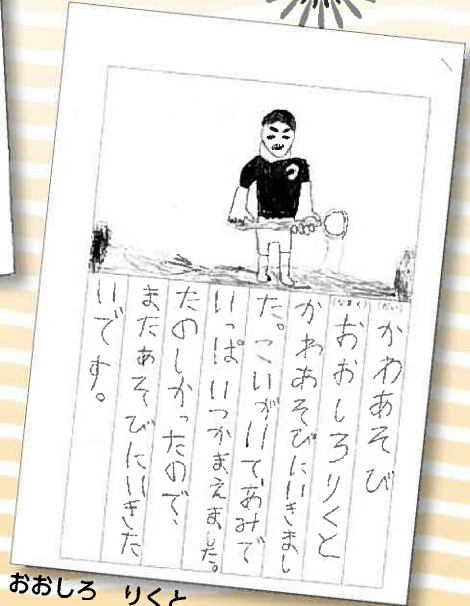 (だい) かわあそび
(なまえ) おおしろりくと
かわあそびにいきまし
た。こいがいて、あみで
いっぱいつかまえました。
たのしかったので、
またあそびにいきた
いです。
おおしろ りくと